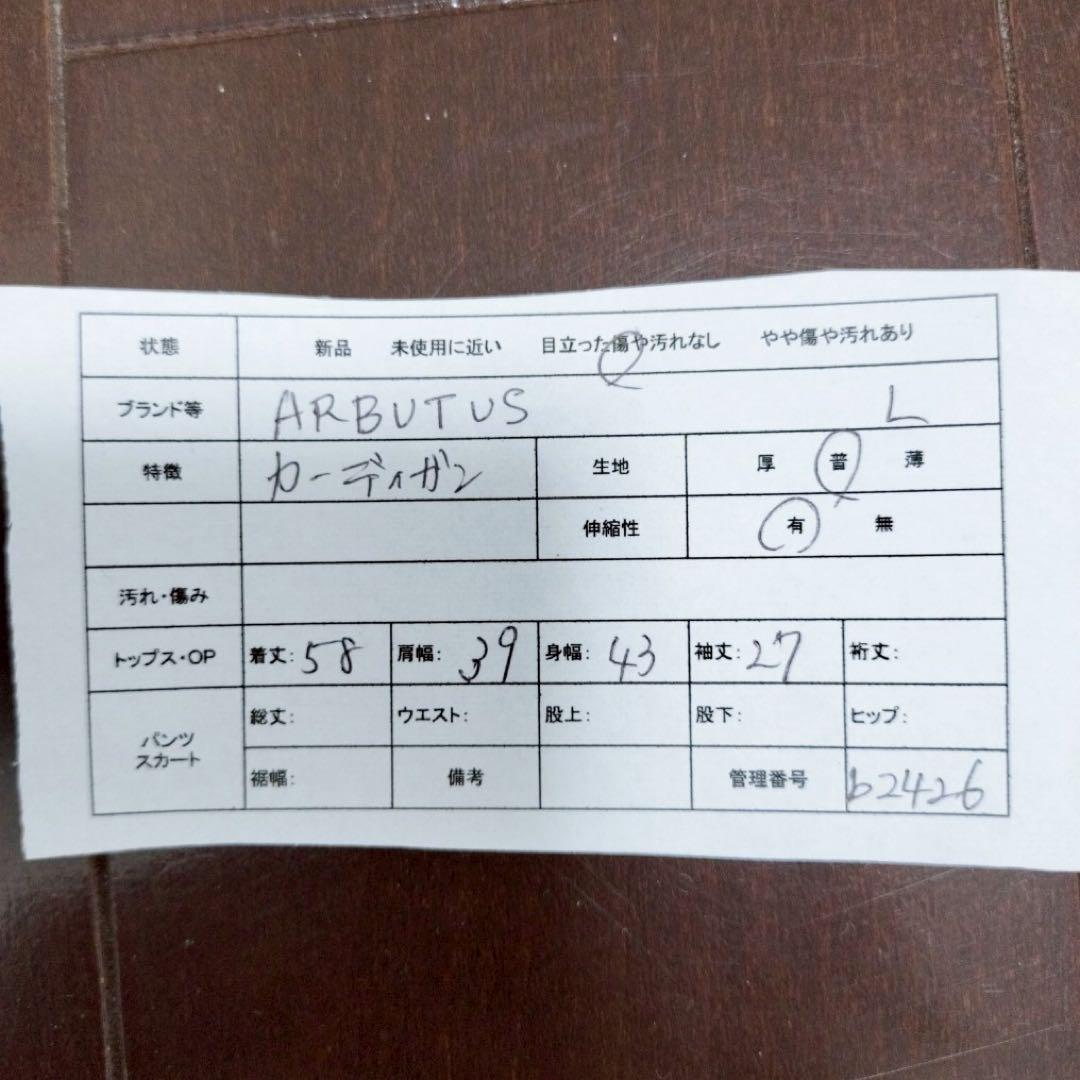 状態 新品 未使用に近い 目立った傷や汚れなし やや傷や汚れあり
ブランド等 ARBUTUS L
特徴 カーディガン 生地 厚 普 薄
伸縮性 有 無
汚れ・傷み
トップス・OP 着丈: 58 肩幅: 39 身幅: 43 袖丈: 27 裄丈:
パンツ
スカート
総丈: ウエスト: 股上: 股下: ヒップ:
裾幅: 備考 管理番号 b2426